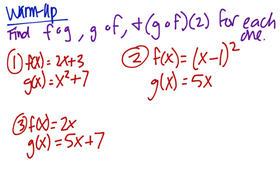 Warm-Up
Find f∘g, g∘f, + (g∘f)(2) for each one.
① f(x) = 2x+3
g(x) = x²+7
② f(x) = (x-1)²
g(x) = 5x
③ f(x) = 2x
g(x) = 5x+7